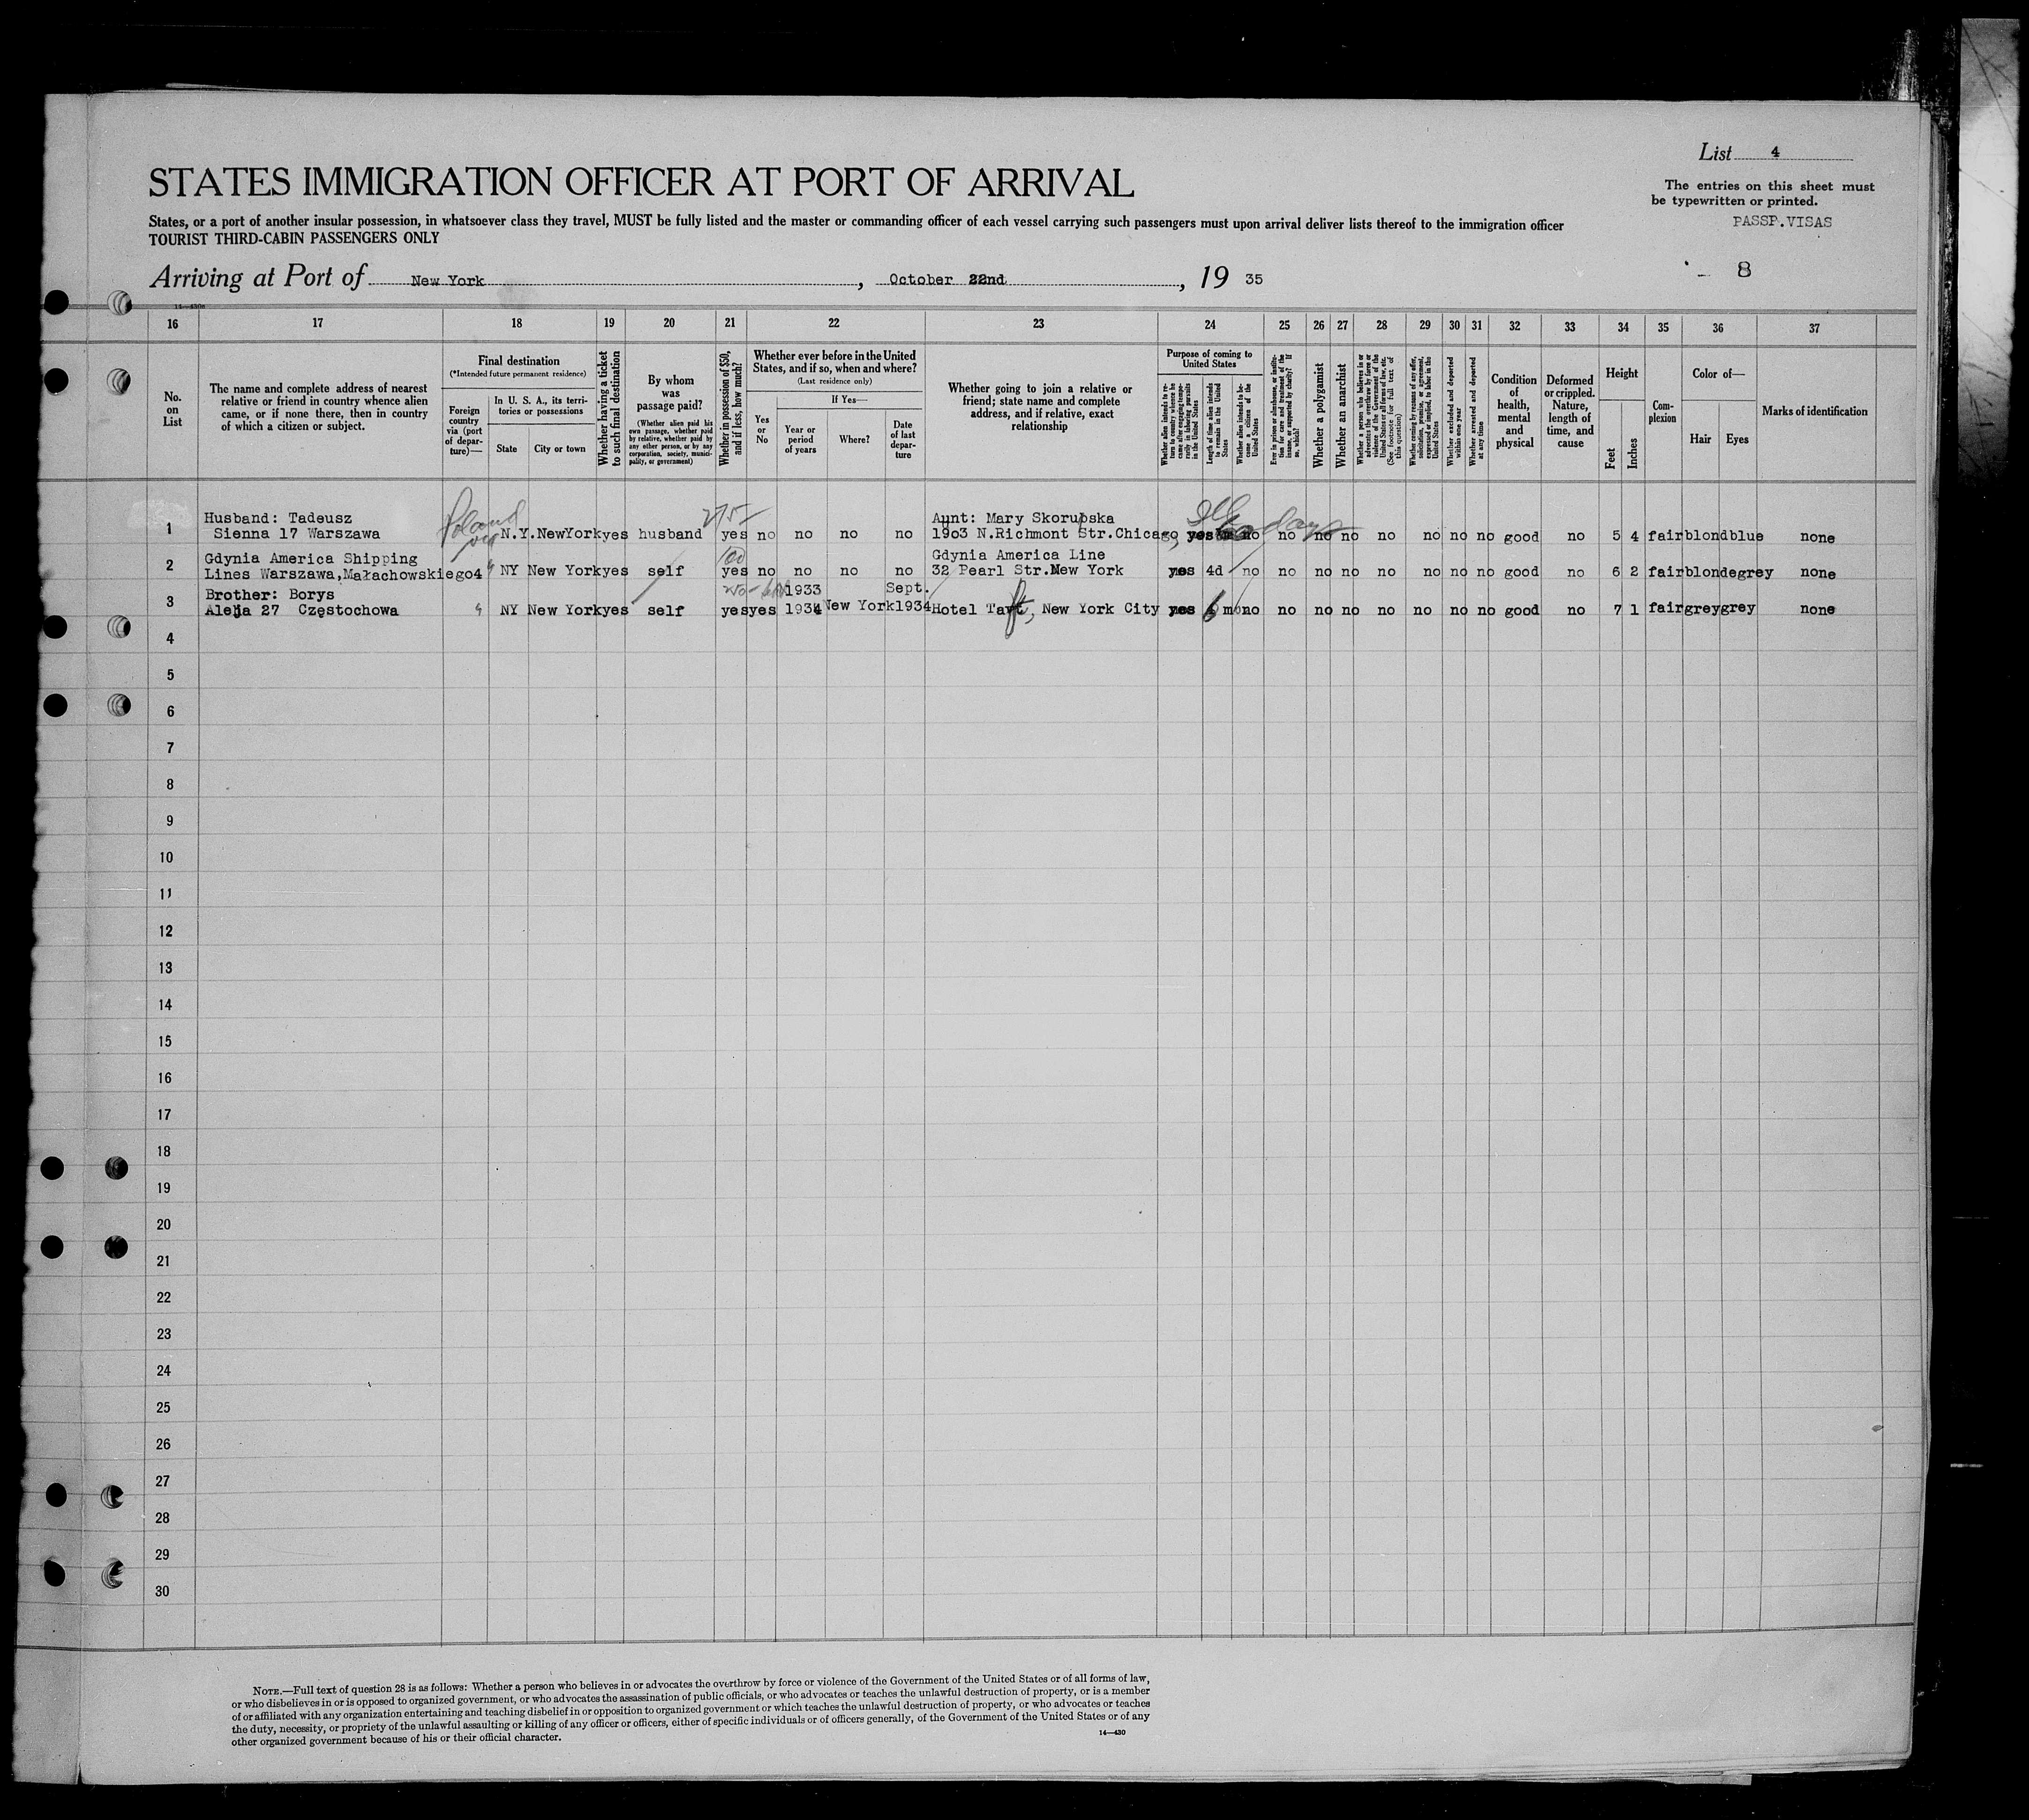 List 4
STATES IMMIGRATION OFFICER AT PORT OF ARRIVAL
The entries on this sheet must
be typewritten or printed.
States, or a port of another insular possession, in whatsoever class they travel, MUST be fully listed and the master or commanding officer of each vessel carrying such passengers must upon arrival deliver lists thereof to the immigration officer
PASSP.VISAS
TOURIST THIRD-CABIN PASSENGERS ONLY
Arriving at Port of New York, October 22nd, 19 35
8
16 17 18 19 20 21 22 23 24 25 26 27 28 29 30 31 32 33 34 35 36 37
No. on List
The name and complete address of nearest
relative or friend in country whence alien
came, or if none there, then in country
of which a citizen or subject.
Final destination
(*Intended future permanent residence)
Foreign country via (port of departure)—
In U. S. A., its territories or possessions
State
City or town
Whether having a ticket to such final destination
By whom was passage paid?
(Whether alien paid his own passage, whether paid by relative, whether paid by any other person, or by any corporation, society, municipality, or government)
Whether in possession of $50, and if less, how much?
Whether ever before in the United States, and if so, when and where?
(Last residence only)
Yes or No
If Yes—
Year or period of years
Where?
Date of last departure
Whether going to join a relative or
friend; state name and complete
address, and if relative, exact
relationship
Purpose of coming to United States
Whether alien intends to return to country whence he came after engaging temporarily in laboring pursuits in the United States
Length of time alien intends to remain in the United States
Whether alien intends to become a citizen of the United States
Ever in prison or almshouse, or institution for care and treatment of the insane, or supported by charity? If so, which?
Whether a polygamist
Whether an anarchist
Whether a person who believes in or advocates the overthrow by force or violence of the Government of the United States or all forms of law, etc. (See footnote for full text of this question)
Whether coming by reason of any offer, solicitation, promise, or agreement, expressed or implied, to labor in the United States
Whether excluded and deported within one year
Whether arrested and deported at any time
Condition of health, mental and physical
Deformed or crippled. Nature, length of time, and cause
Height
Feet
Inches
Complexion
Color of—
Hair
Eyes
Marks of identification
Husband: Tadeusz Aunt: Mary Skorupska
1 Sienna 17 Warszawa Poland N.Y. NewYork yes husband 275 yes no no no no 1903 N.Richmont Str.Chicago, yes 60 days no no no no no no no no good no 5 4 fair blond blue none
Gdynia America Shipping 100 Gdynia America Line
2 Lines Warszawa,Małachowskiego4 " NY New York yes self yes no no no no 32 Pearl Str.New York yes 4d no no no no no no no no good no 6 2 fair blonde grey none
Brother: Borys 1933 Sept.
3 Aleja 27 Częstochowa " NY New York yes self yes yes 1934 New York 1934 Hotel Taft, New York City yes 6 m no no no no no no no no good no 7 1 fair grey grey none
4
5
6
7
8
9
10
11
12
13
14
15
16
17
18
19
20
21
22
23
24
25
26
27
28
29
30
NOTE.—Full text of question 28 is as follows: Whether a person who believes in or advocates the overthrow by force or violence of the Government of the United States or of all forms of law,
or who disbelieves in or is opposed to organized government, or who advocates the assassination of public officials, or who advocates or teaches the unlawful destruction of property, or is a member
of or affiliated with any organization entertaining and teaching disbelief in or opposition to organized government or which teaches the unlawful destruction of property, or who advocates or teaches
the duty, necessity, or propriety of the unlawful assaulting or killing of any officer or officers, either of specific individuals or of officers generally, of the Government of the United States or of any
other organized government because of his or their official character.
14—430